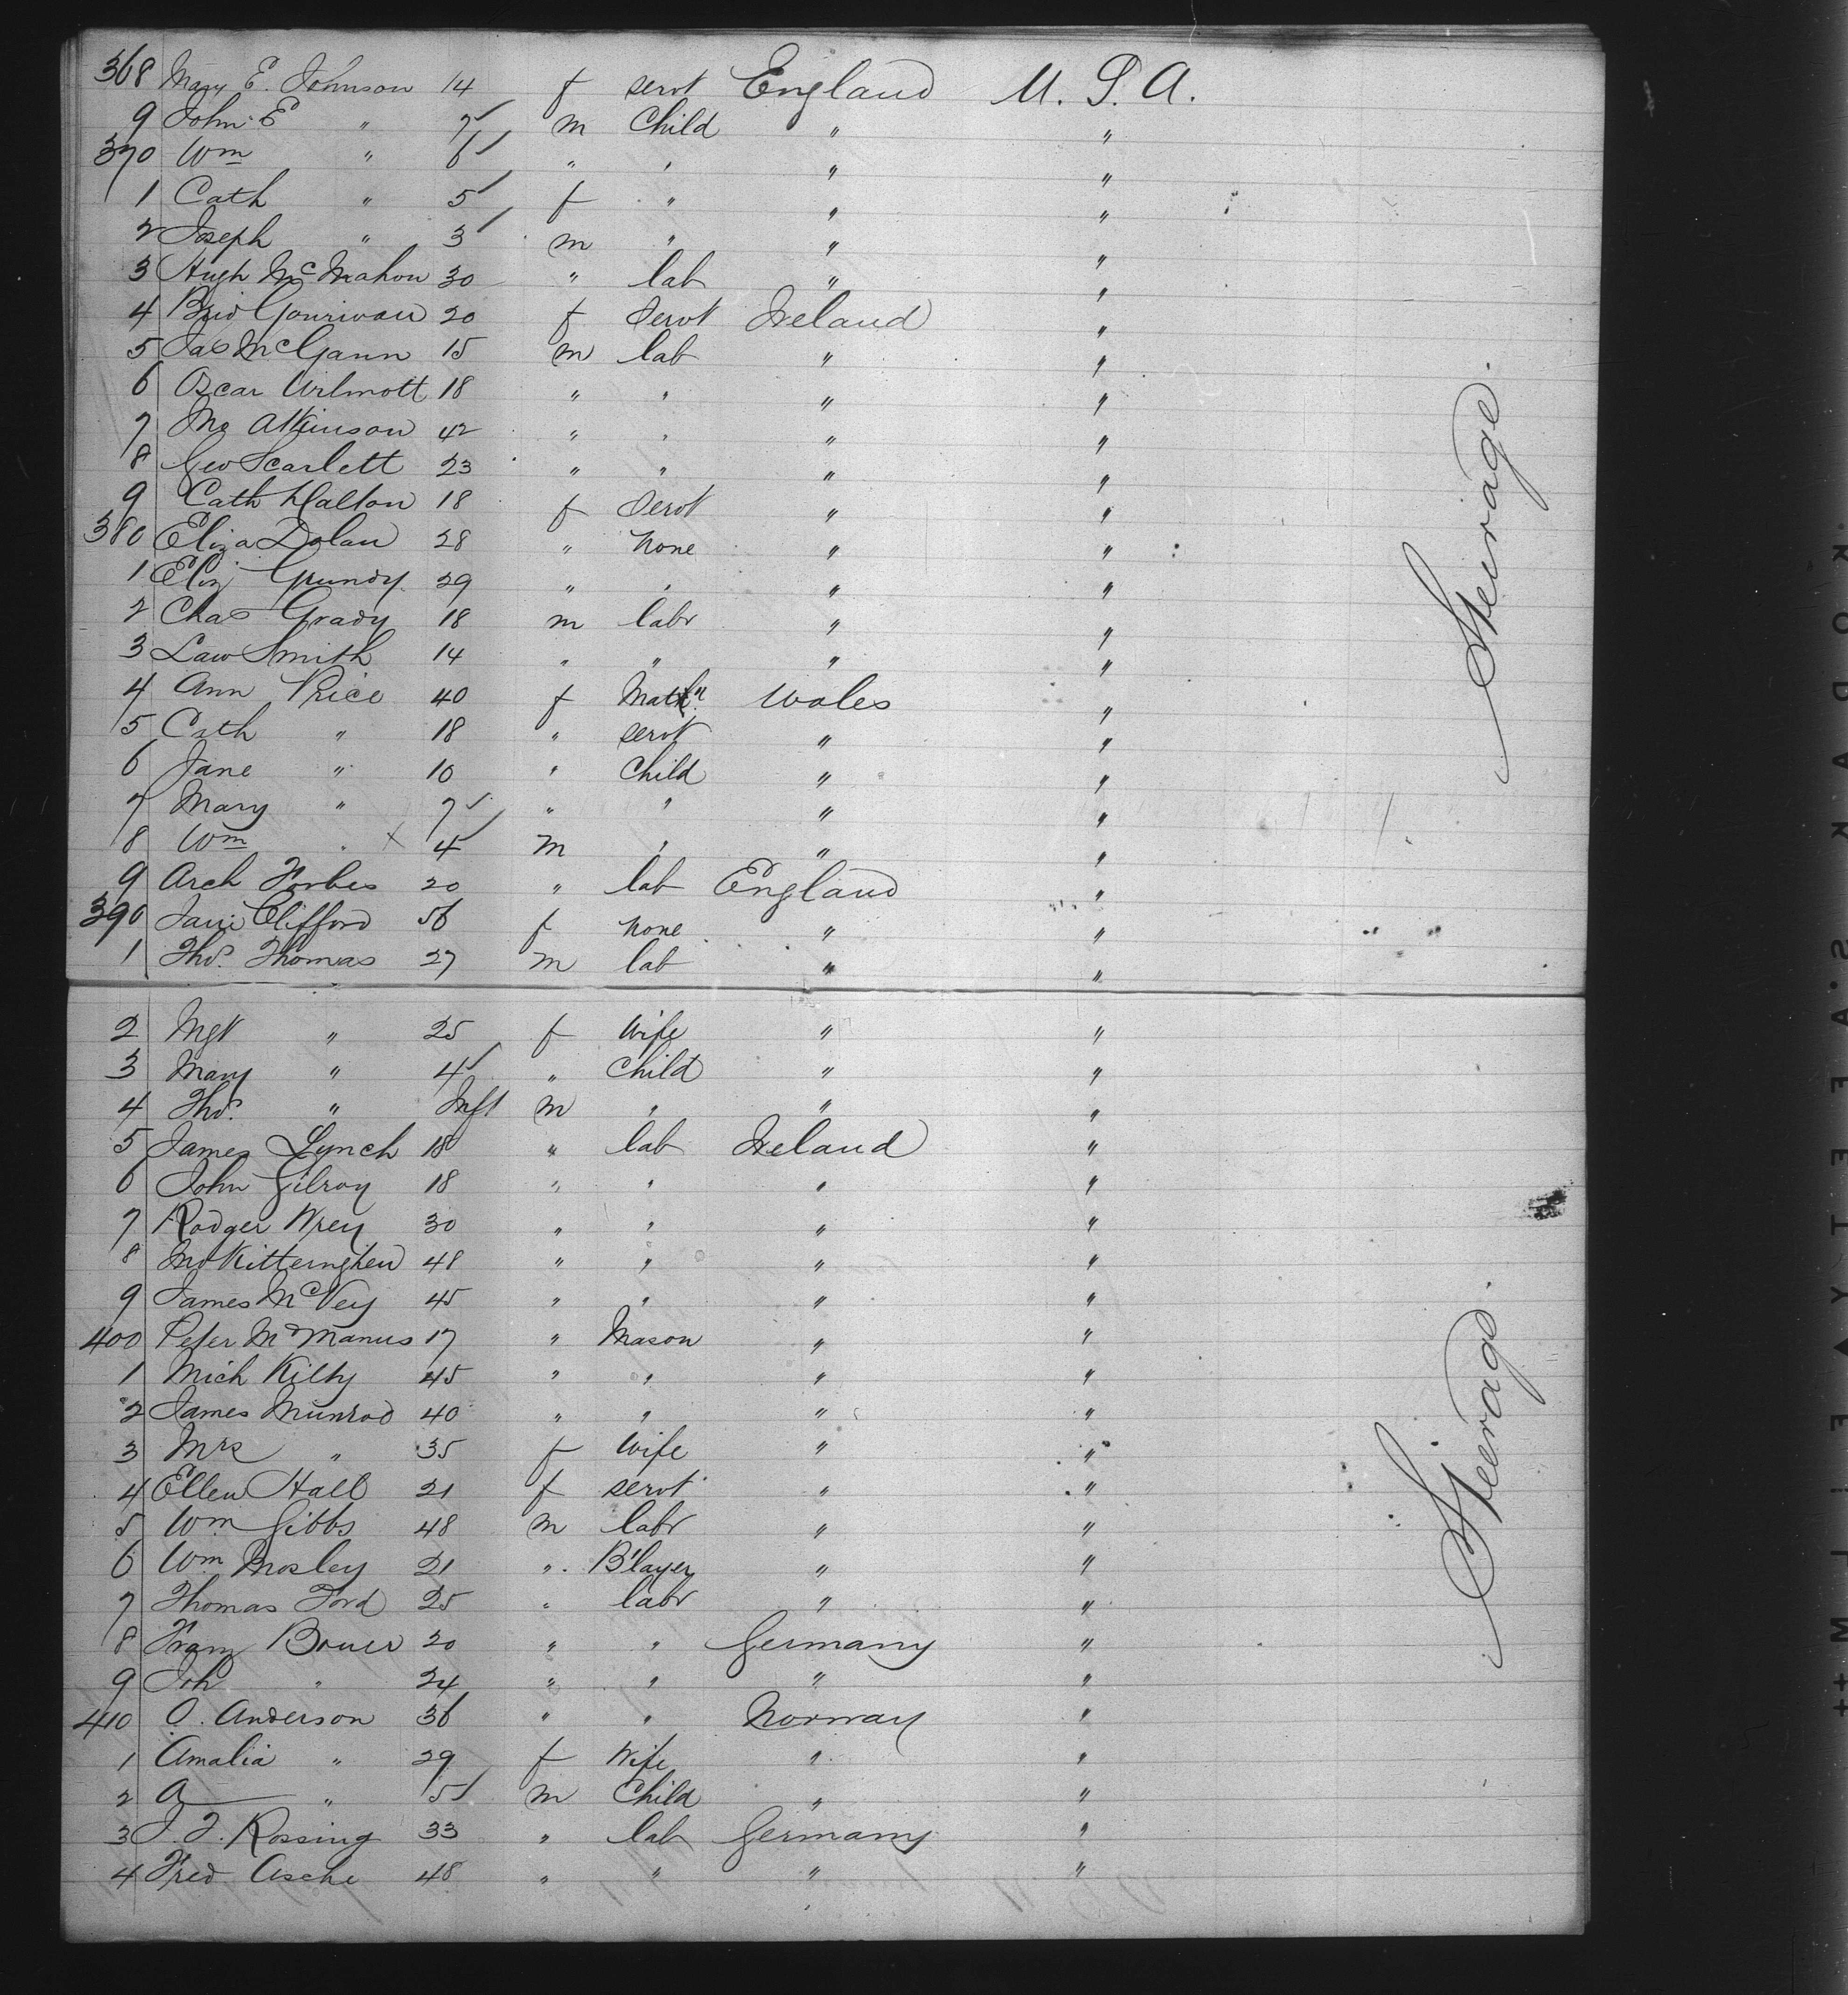 368 Mary E. Johnson 14 f servt England U. S. A.
9 John E " 7 m Child " "
370 Wm " 6 " " " "
1 Cath " 5 f " " "
2 Joseph " 3 m " " "
3 Hugh McMahon 30 " lab " "
4 Brid 20 f Servt Ireland "
5 Jas McGann 15 m lab " "
6 Oscar Wilmott 18 " " " "
7 Jno Atkinson 42 " " " "
8 Geo Scarlett 23 " " " "
9 Cath Dalton 18 f Servt " "
380 Eliza Dolan 28 " None " "
1 Eliz Grundy 29 " " " "
2 Chas Grady 18 m labr " "
3 Law Smith 14 " " " "
4 Ann Price 40 f Wales "
5 Cath " 18 " servt " "
6 Jane " 10 " Child " "
7 Mary " 7 " " " "
8 Wm " x 4 m " " "
9 Arch Forbes 20 " lab England "
390 Jane Clifford 56 f None " "
1 Thos. Thomas 27 m lab " "
2 Mgt " 25 f Wife " "
3 Mary " 4 " Child " "
4 Thos. " Inft m " " "
5 James Lynch 18 " lab Ireland "
6 John Gilroy 18 " " " "
7 Rodger Wrey 30 " " " "
8 Jno 48 " " " "
9 James McVey 45 " " " "
400 Peter McManus 17 " Mason " "
1 Mich Kilty 45 " " " "
2 James Munrod 40 " " " "
3 Mrs " 35 f Wife " "
4 Ellen Hall 21 f servt " "
5 Wm Gibbs 48 m labr " "
6 Wm Mosley 21 " B'layer " "
7 Thomas Ford 25 " labr " "
8 Franz Bauer 20 " " Germany "
9 Joh " 24 " " " "
410 O. Anderson 36 " " Norway "
1 Amalia " 29 f Wife " "
2 A " 5 m Child " "
3 J. F. Rossing 33 " lab Germany "
4 Fred Asche 48 " " " "
Steerage.
Steerage.